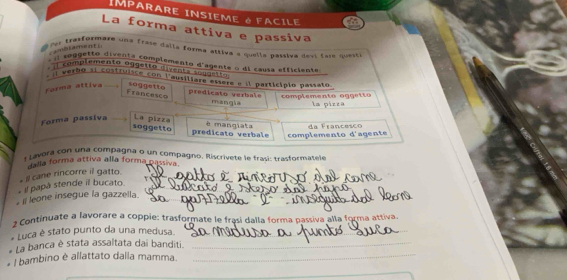 IMPARARE INSIEME è FACILE
La forma attiva e passiva
Per trasformare una frase dalla forma attiva a quella passiva devi fare questi
cambiamenti:
• il soggetto diventa complemento d'agente o di causa efficiente;
• il complemento oggetto diventa soggetto;
• il verbo si costruisce con l'ausiliare essere e il participio passato.
Forma attiva soggetto predicato verbale complemento oggetto
Francesco mangia la pizza
Forma passiva La pizza è mangiata da Francesco
soggetto predicato verbale complemento d'agente
1 Lavora con una compagna o un compagno. Riscrivete le frasi: trasformatele
dalla forma attiva alla forma passiva.
• Il cane rincorre il gatto. Il gatto è rincorso dal cane
• Il papà stende il bucato. Il bucato è steso dal papà
• Il leone insegue la gazzella. La gazzella è inseguita dal leone
2 Continuate a lavorare a coppie: trasformate le frasi dalla forma passiva alla forma attiva.
• Luca è stato punto da una medusa. La medusa a punto Luca
• La banca è stata assaltata dai banditi.
• I bambino è allattato dalla mamma.